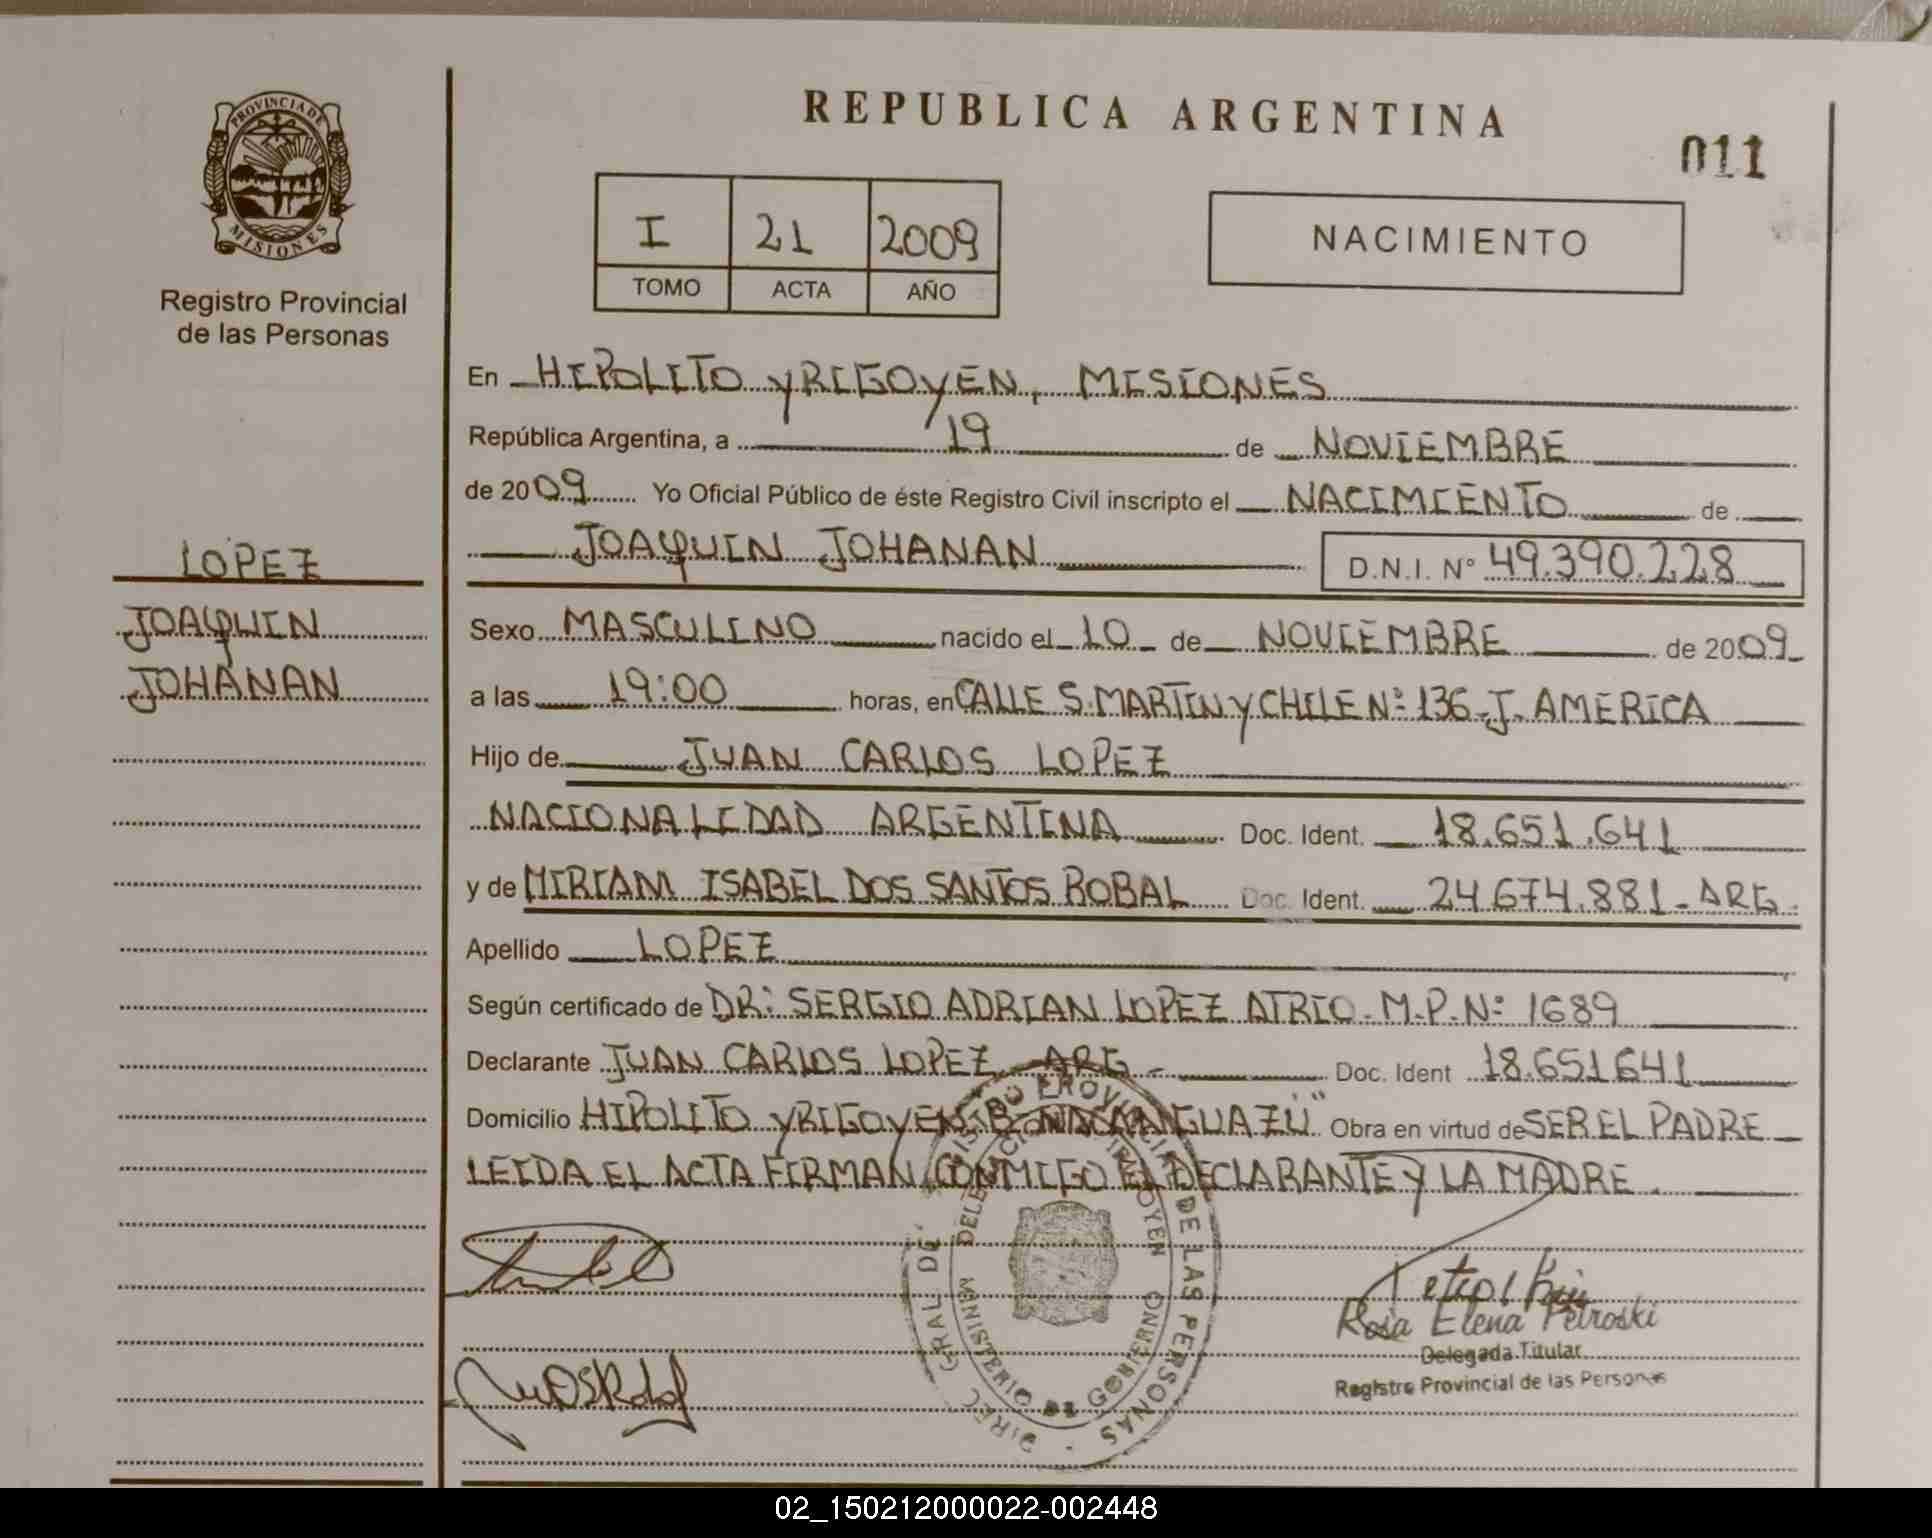 REPUBLICA ARGENTINA
011
PROVINCIA DE
MISIONES
Registro Provincial
de las Personas
I 21 2009
TOMO ACTA AÑO
NACIMIENTO
En HIPOLITO YRIGOYEN, MISIONES
República Argentina, a 19 de NOVIEMBRE
de 2009 Yo Oficial Público de éste Registro Civil inscripto el NACIMIENTO de
JOAQUIN JOHANAN D.N.I. N° 49.390.228
LOPEZ
JOAQUIN
JOHANAN
Sexo MASCULINO nacido el 10 de NOVIEMBRE de 2009
a las 19:00 horas, en CALLE S. MARTIN Y CHILE Nº 136 - J. AMERICA
Hijo de JUAN CARLOS LOPEZ
NACIONALIDAD ARGENTINA Doc. Ident. 18.651.641
y de MIRIAM ISABEL DOS SANTOS ROBAL Doc. Ident. 24.674.881 - ARG.
Apellido LOPEZ
Según certificado de DR: SERGIO ADRIAN LOPEZ ATRIO - M.P. Nº 1689
Declarante JUAN CARLOS LOPEZ ARG - Doc. Ident 18.651641
Domicilio HIPOLITO YRIGOYEN Obra en virtud de SER EL PADRE
LEIDA EL ACTA FIRMAN CONMIGO EL DECLARANTE Y LA MADRE.
DIREC. GRAL. DE REGISTRO PROVINCIAL DE LAS PERSONAS
MINISTERIO DE GOBIERNO
Rosa Elena Petroski
Delegada Titular
Registro Provincial de las Personas
02_150212000022-002448